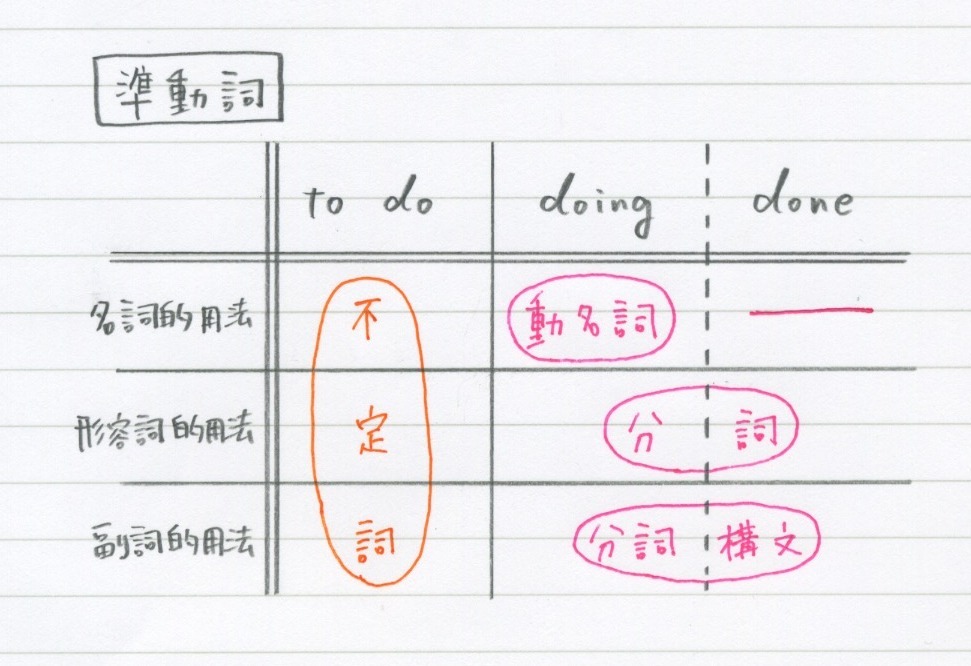 準動詞
to do doing done
名詞的用法 不 動名詞
形容詞的用法 定 分詞
副詞的用法 詞 分詞構文